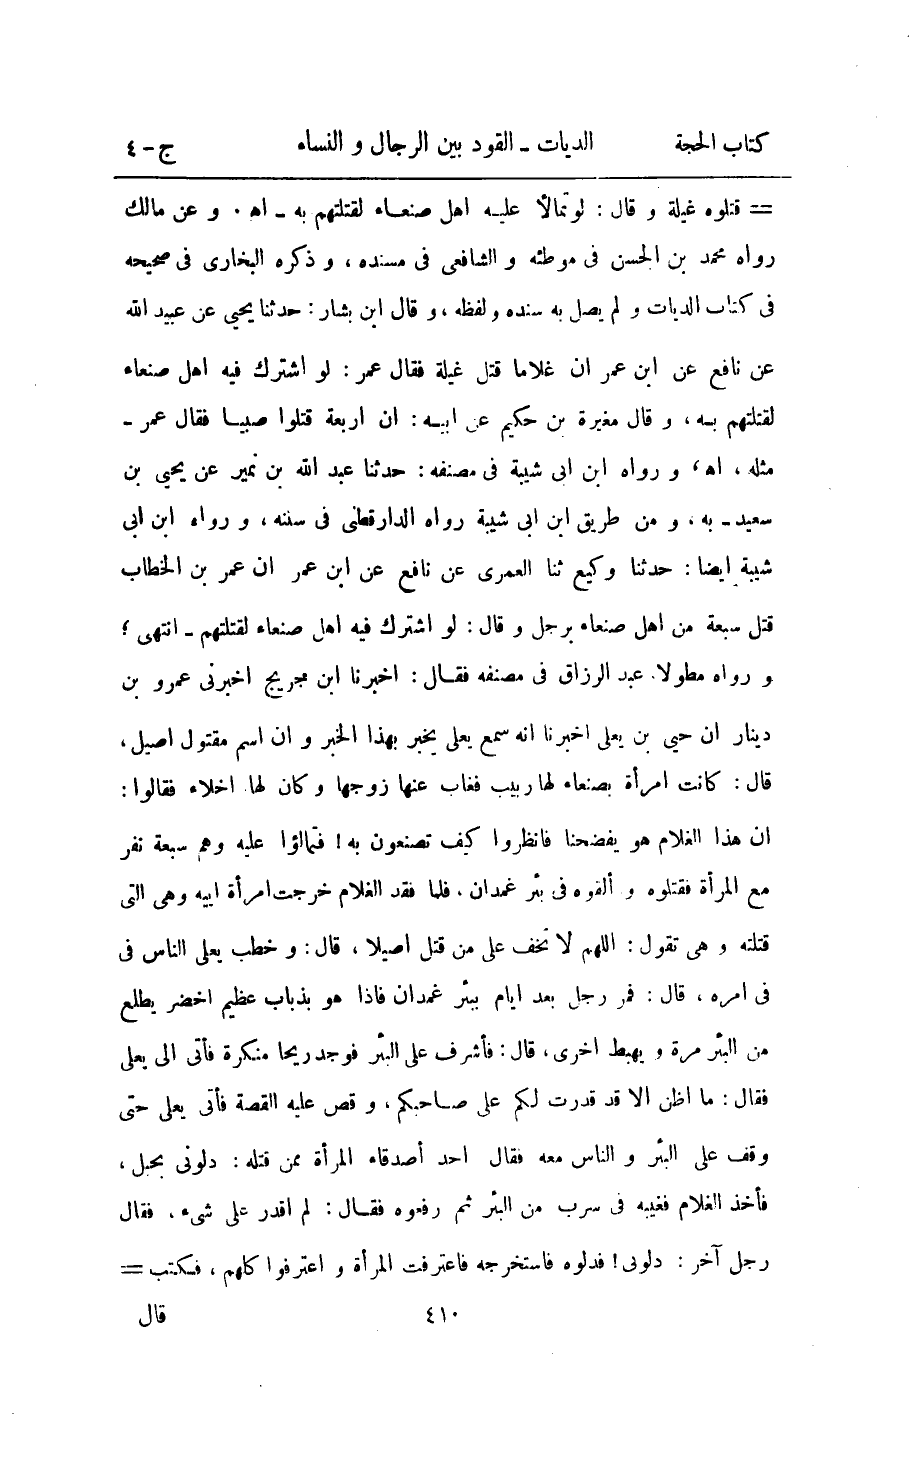 كتاب الحجة الديات ـ القود بين الرجال و النساء ج-٤
== قتلوه غيلة و قال : لو تمالأ عليه اهل صنعاء لقتلتهم به ـ اه . و عن مالك
رواه محمد بن الحسن فى موطئه و الشافعى فى مسنده ، و ذكره البخارى فى صحيحه
فى كتاب الديات و لم يصل به سنده و لفظه ، و قال ابن بشار : حدثنا يحيى عن عبيد الله
عن نافع عن ابن عمر ان غلاما قتل غيلة فقال عمر : لو اشترك فيه اهل صنعاء
لقتلتهم به ، و قال مغيرة بن حكيم عن ابيه : ان اربعة قتلوا صبيا فقال عمر ـ
مثله ، اه ، و رواه ابن ابى شيبة فى مصنفه : حدثنا عبد الله بن نمير عن يحيى بن
سعيد ـ به ، و من طريق ابن ابى شيبة رواه الدارقطنى فى سننه ، و رواه ابن ابى
شيبة ايضا : حدثنا وكيع ثنا العمرى عن نافع عن ابن عمر ان عمر بن الخطاب
قتل سبعة من اهل صنعاء برجل و قال : لو اشترك فيه اهل صنعاء لقتلتهم ـ انتهى ؛
و رواه مطولا عبد الرزاق فى مصنفه فقال : اخبرنا ابن جريج اخبرنى عمرو بن
دينار ان حيى بن يعلى اخبرنا انه سمع يعلى يخبر بهذا الخبر و ان اسم مقتول اصيل ،
قال : كانت امرأة بصنعاء لها ربيب فغاب عنها زوجها و كان لها اخلاء فقالوا :
ان هذا الغلام هو يفضحنا فانظروا كيف تصنعون به ! فتمالؤا عليه وهم سبعة نفر
مع المرأة فقتلوه و ألقوه فى بئر غمدان ، فلما فقد الغلام خرجت امرأة ابيه وهى التى
قتلته و هى تقول : اللهم لا تخف على من قتل اصيلا ، قال : و خطب يعلى الناس فى
فى امره ، قال : فمر رجل بعد ايام ببئر غمدان فاذا هو بذباب عظيم اخضر يطلع
من البئر مرة و يهبط اخرى ، قال : فأشرف على البئر فوجد ريحا منكرة فأتى الى يعلى
فقال : ما اظن الا قد قدرت لكم على صاحبكم ، و قص عليه القصة فأتى يعلى حتى
وقف على البئر و الناس معه فقال احد أصدقاء المرأة ممن قتله : دلونى بحبل ،
فأخذ الغلام فغيبه فى سرب من البئر ثم رفعوه فقال : لم اقدر على شىء ، فقال
رجل آخر : دلونى ! فدلوه فاستخرجه فاعترفت المرأة و اعترفوا كلهم ، فكتب ==
٤١٠ قال